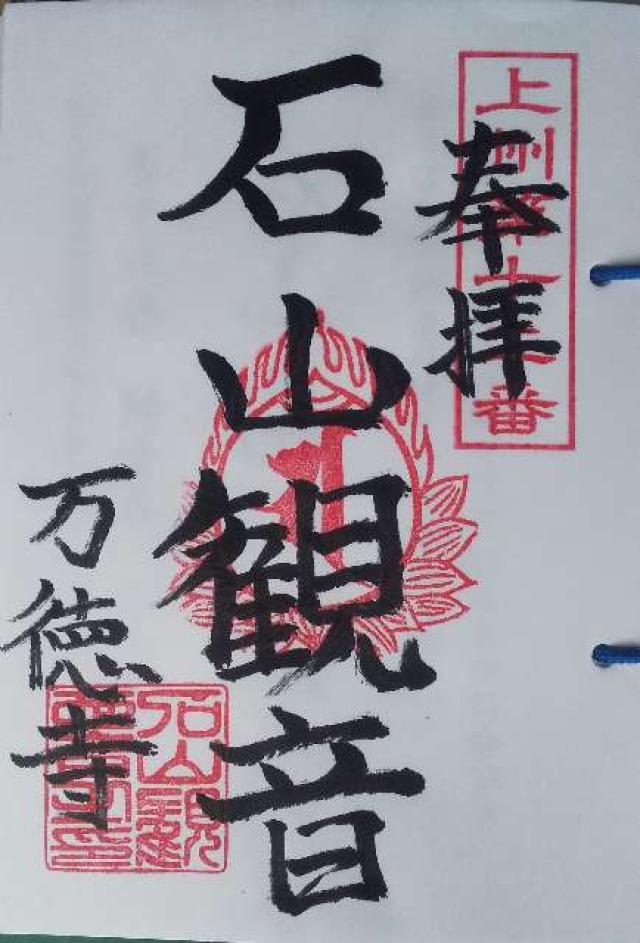 上州第十番
奉拝
石山観音
万徳寺
石山観